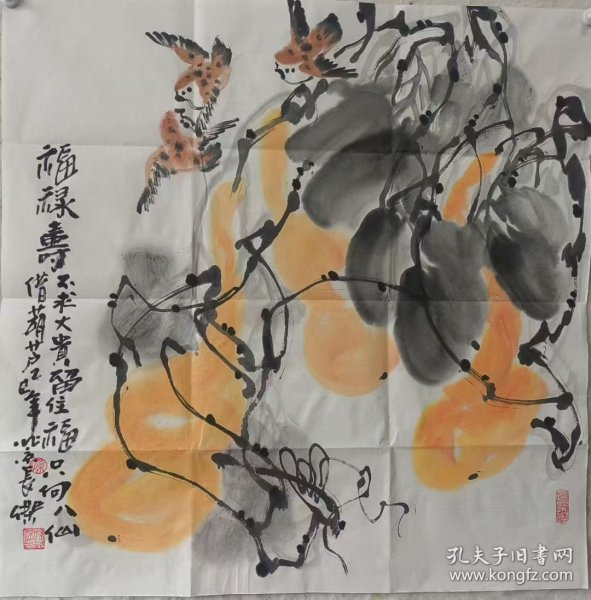 福禄寿
不求大贵留住福只向八仙
借葫芦己年
孔夫子旧书网
www.kongfz.com